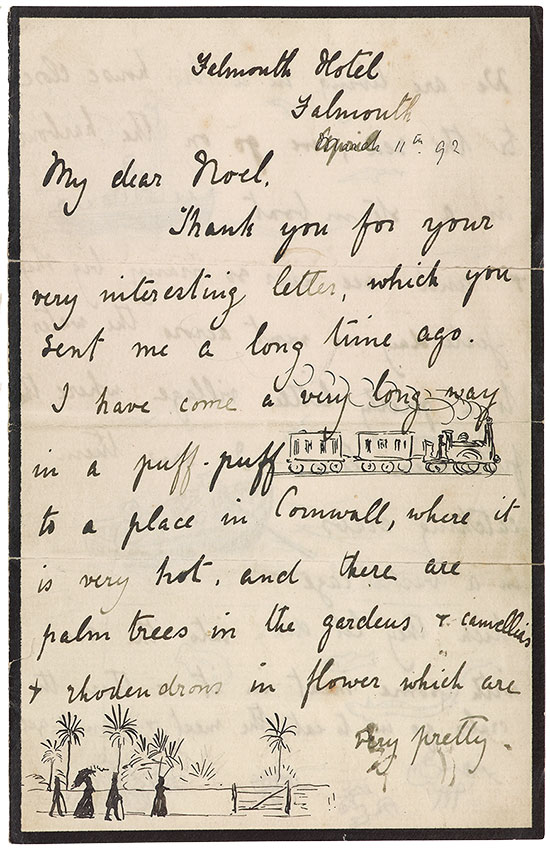 Falmouth Hotel
Falmouth
11th 92
My dear Noel,
Thank you for your
very interesting letter, which you
sent me a long time ago.
I have come a very long way
in a puff-puff
to a place in Cornwall, where it
is very hot, and there are
palm trees in the gardens & camellias
& rhodendrons in flower which are
very pretty.